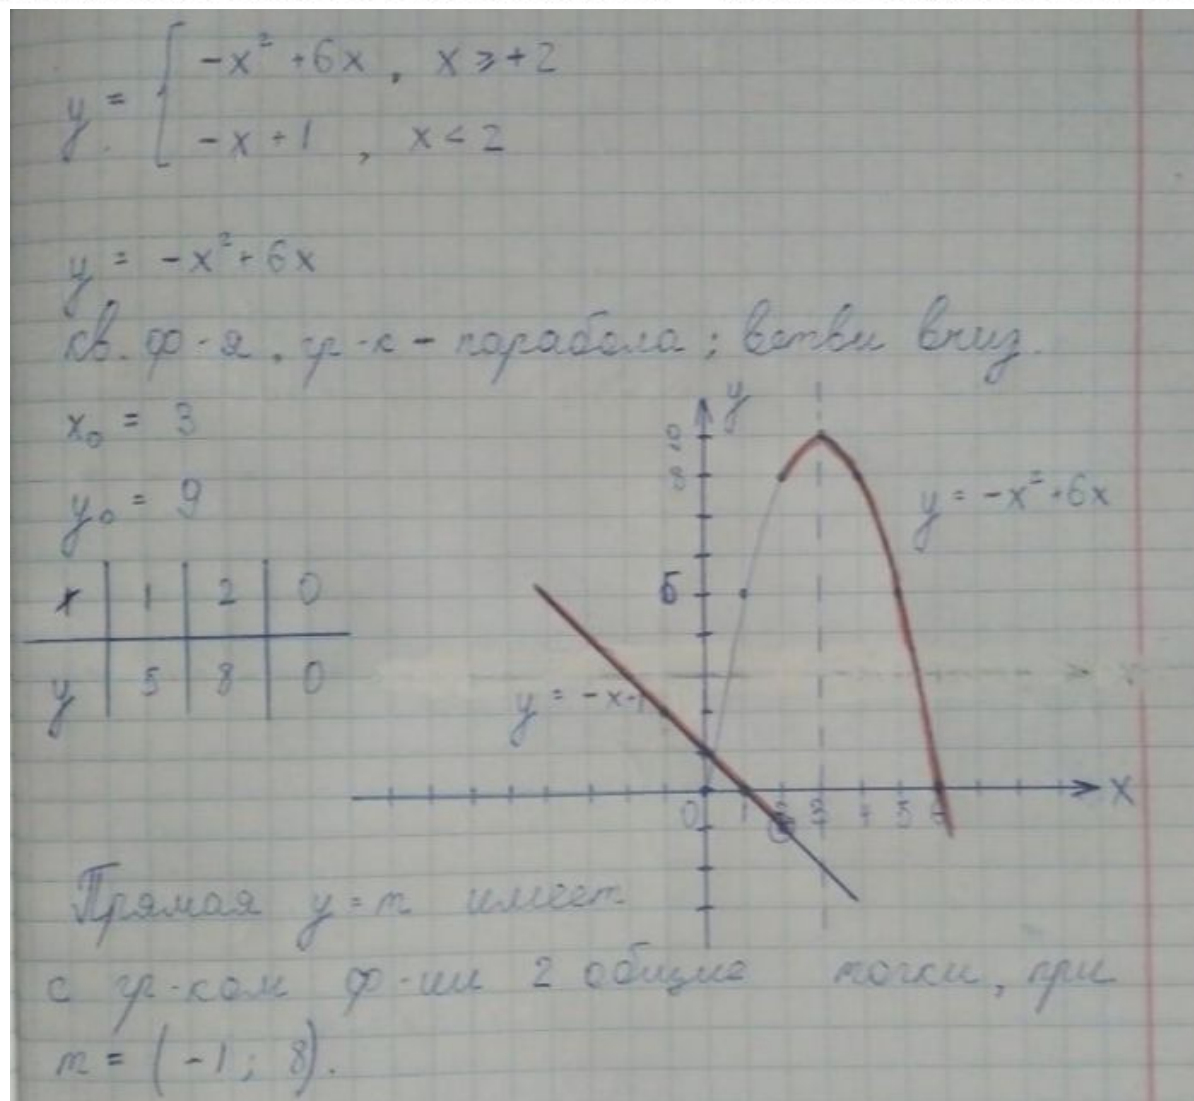 y = { -x² + 6x, x ≥ +2
-x + 1, x < 2
y = -x² + 6x
кв. ф-я, гр-к - парабола; ветви вниз.
x₀ = 3
y₀ = 9
x | 1 | 2 | 0
y | 5 | 8 | 0
y
9
8
5
y = -x² + 6x
y = -x+1
0 1 2 3 4 5 6 x
Прямая y = m имеет
с гр-ком ф-ии 2 общие точки, при
m = (-1; 8).